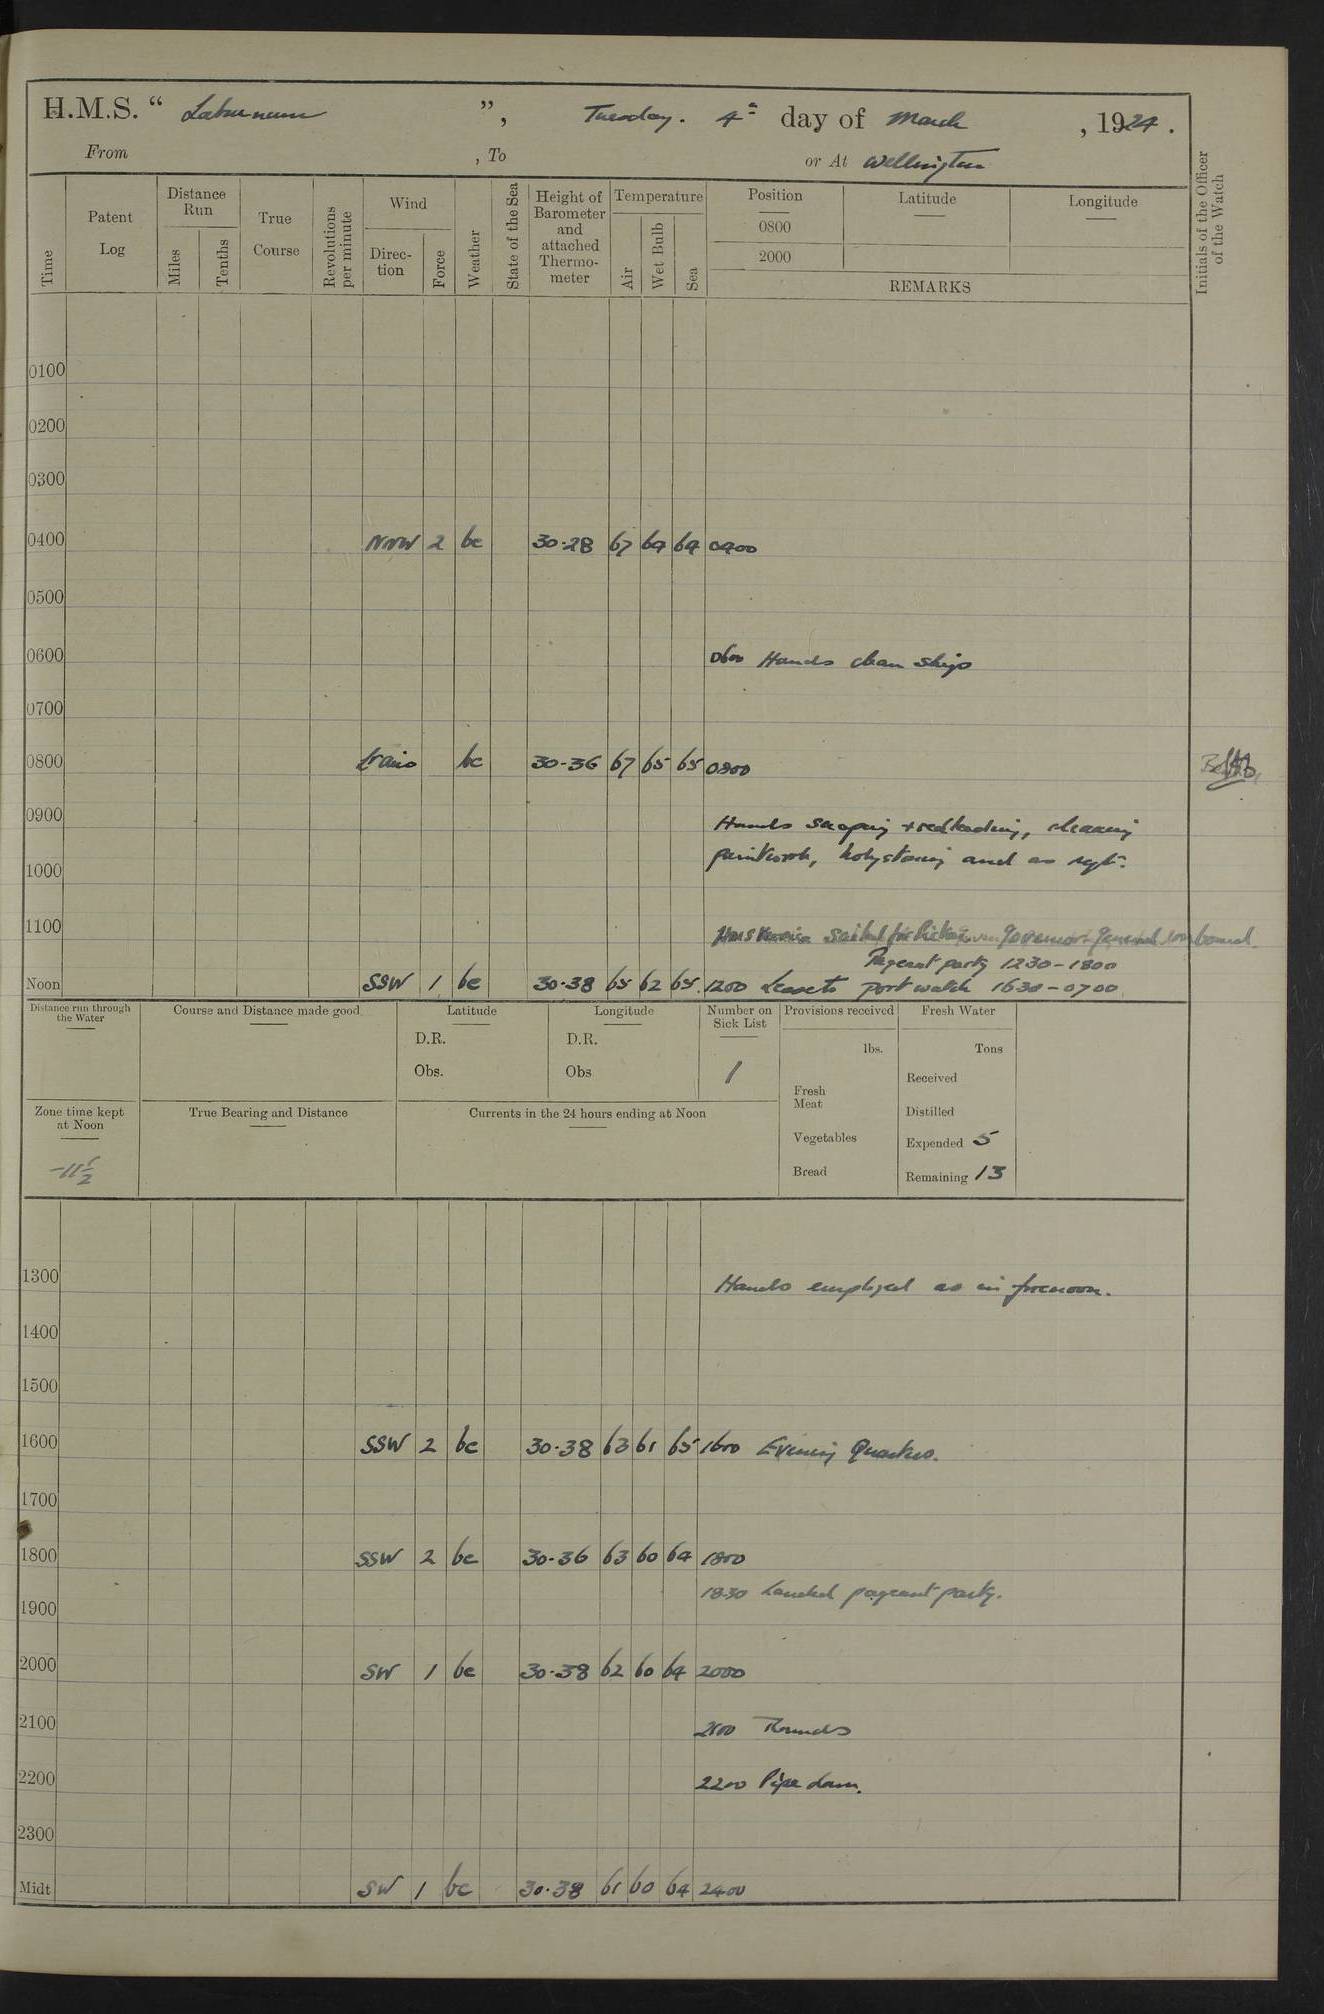 H.M.S. “ Laburnum ”, Tuesday. 4th day of March, 1924.
From , To or At Wellington
Time
Patent Log
Distance Run
Miles
Tenths
True Course
Revolutions per minute
Wind
Direction
Force
Weather
State of the Sea
Height of Barometer and attached Thermometer
Temperature
Air
Wet Bulb
Sea
Position
0800
2000
Latitude
Longitude
REMARKS
Initials of the Officer of the Watch
0100
0200
0300
0400 NNW 2 bc 30.28 67 64 64 0400
0500
0600 0600 Hands clean ship
0700
0800 bc 30-36 67 65 65 0800
0900 Hands scraping + redleading, cleaning
paintwork, holystoning and as reqt.
1000
1100 sailed for Governor General on board.
Pageant party 1230-1800
Noon SSW 1 bc 30-38 65 62 65 1200 Leave to port watch 1630-0700
Distance run through the Water
Course and Distance made good
Latitude
D.R.
Obs.
Longitude
D.R.
Obs
Number on Sick List
1
Provisions received
lbs.
Fresh Meat
Vegetables
Bread
Fresh Water
Tons
Received
Distilled
Expended 5
Remaining 13
Zone time kept at Noon
-11½
True Bearing and Distance
Currents in the 24 hours ending at Noon
1300 Hands employed as in forenoon.
1400
1500
1600 SSW 2 bc 30.38 63 61 65 1600 Evening Quarters.
1700
1800 SSW 2 bc 30-36 63 60 64 1800
1830 Landed pageant party.
1900
2000 SW 1 bc 30.38 62 60 64 2000
2100 2100 Rounds
2200 2200 Pipe down.
2300
Midt SW 1 bc 30.38 61 60 64 2400